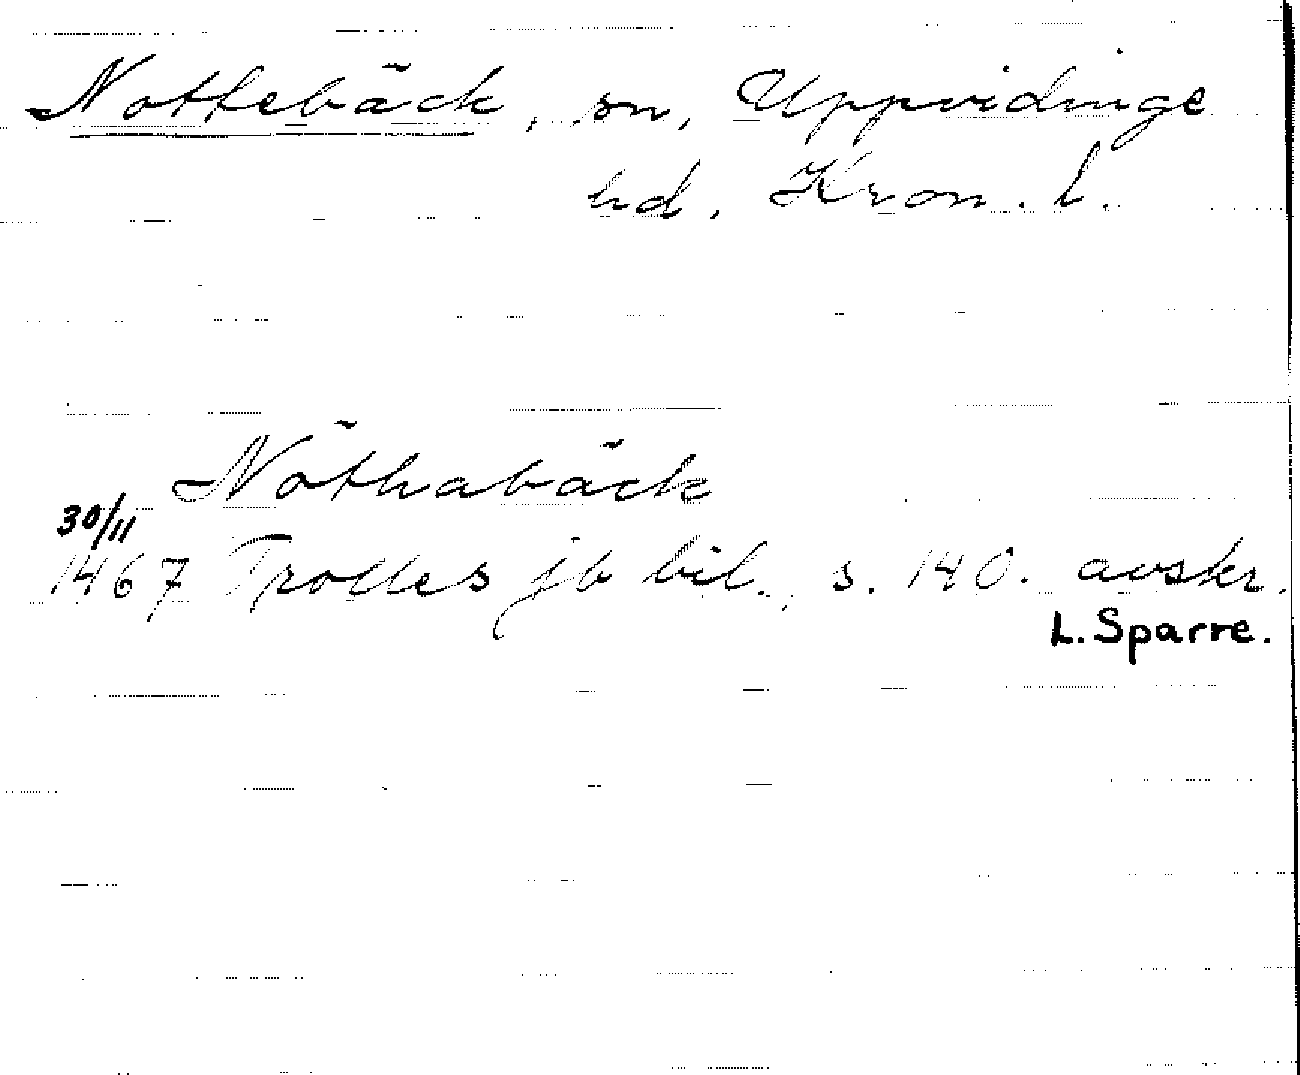 Nottebäck, sn, Uppvidinge
hd, Kron. l.
Nöthabäck
30/11
1467 Trolles jb bil., s. 140. avskr.
L. Sparre.